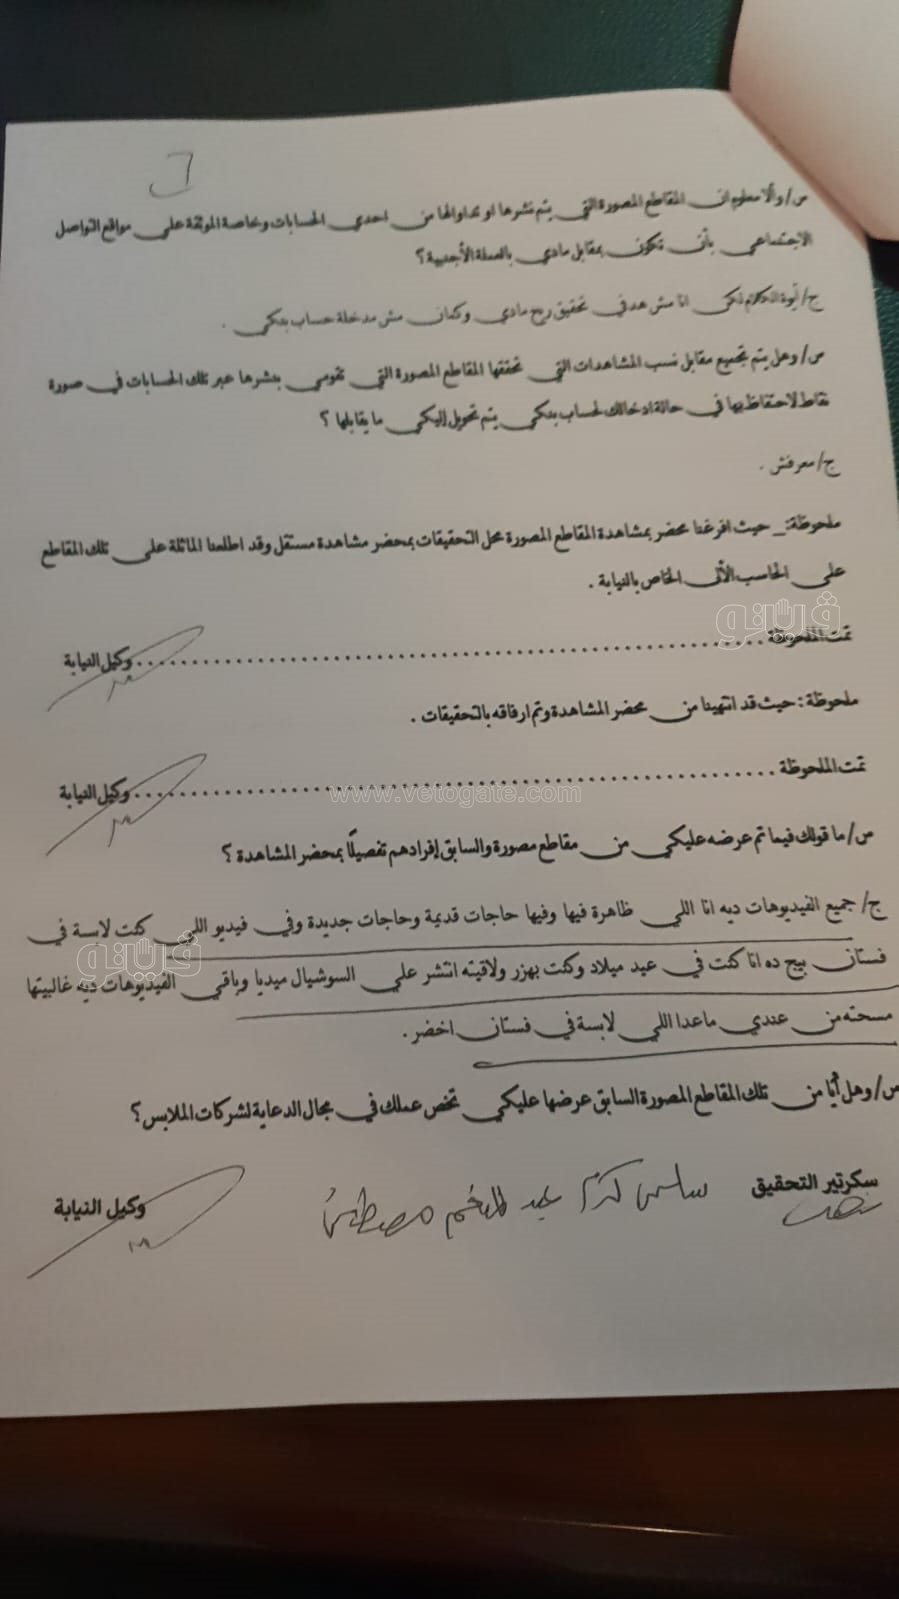 ٦
س/ والا معلوم ان المقاطع المصورة التي يتم نشرها او تداولها من احدي الحسابات وخاصة الموثقة علي مواقع التواصل
الاجتماعي بأن تكون بمقابل مادي بالعملة الأجنبية ؟
ج/ أيوة الكلام لكن انا مش هدفي تحقيق ربح مادي وكمان مش مدخلة حساب بنكي .
س/ وهل يتم تجميع مقابل نسب المشاهدات التي تحققها المقاطع المصورة التي تقومي بنشرها عبر تلك الحسابات في صورة
نقاط لاحتفاظ بها في حالة ادخالك لحساب بنكي يتم تحويل إليكي ما يقابلها ؟
ج/ معرفش .
ملحوظة:_ حيث افرغنا محضر بمشاهدة المقاطع المصورة محل التحقيقات بمحضر مشاهدة مستقل وقد اطلعنا الماثلة علي تلك المقاطع
علي الحاسب الألى الخاص بالنيابة .
فيتو
تمت الملحوظة ............ وكيل النيابة
ملحوظة : حيث قد انتهينا من محضر المشاهدة وتم ارفاقه بالتحقيقات .
تمت الملحوظة ............ وكيل النيابة
www.vetogate.com
س/ ما قولك فيما تم عرضه عليكي من مقاطع مصورة والسابق إفرادهم تفصيلًا بمحضر المشاهدة ؟
ج/ جميع الفيديوهات ديه انا اللي ظاهرة فيها وفيها حاجات قديمة وحاجات جديدة وفي فيديو اللي كنت لابسة في
فيتو
فستان بيج ده انا كنت في عيد ميلاد وكنت بهزر ولاقيته انتشر علي السوشيال ميديا وباقي الفيديوهات ديه غالبيتها
مسحته من عندي ماعدا اللي لابسة في فستان اخضر .
س/ وهل أيا من تلك المقاطع المصورة السابق عرضها عليكي تخص عملك في مجال الدعاية لشركات الملابس ؟
سكرتير التحقيق
عبد المنعم مصطفى
وكيل النيابة